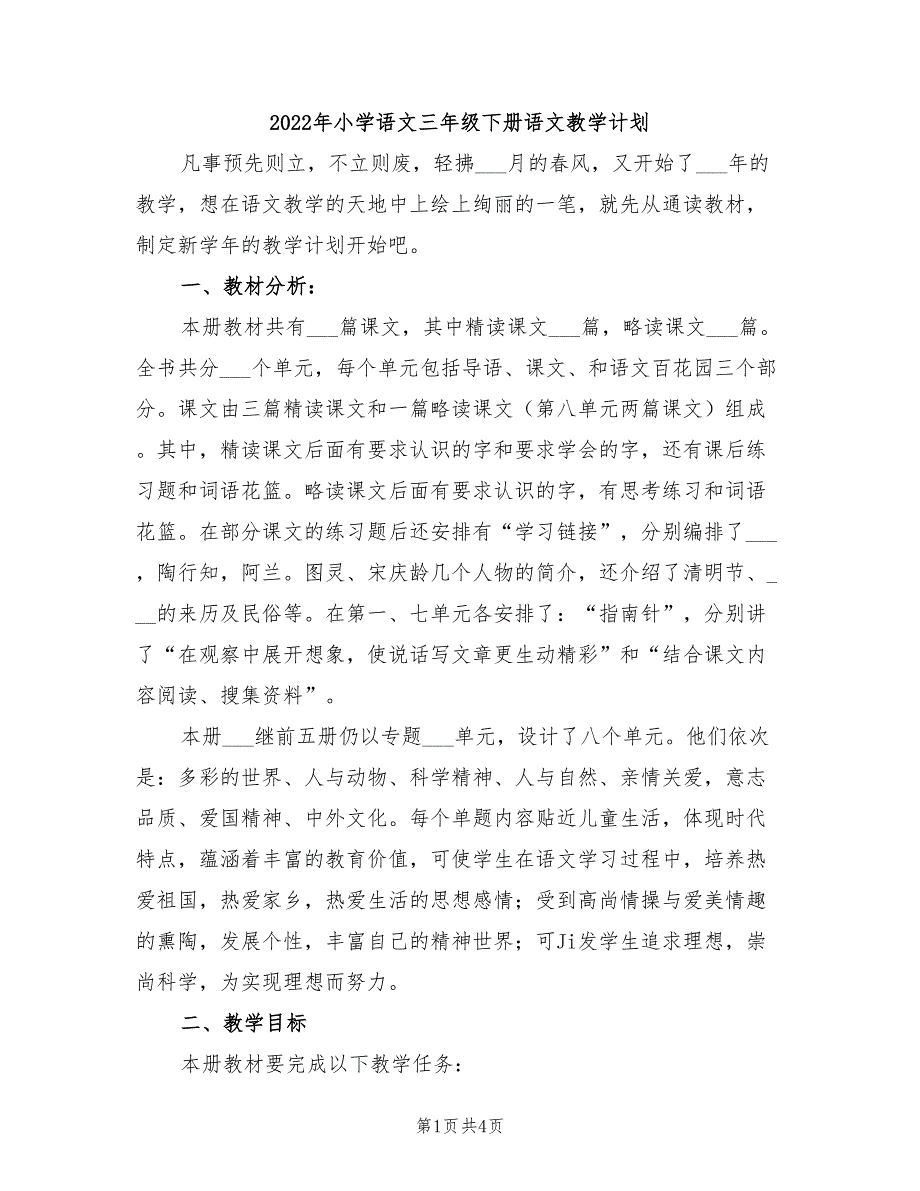 2022年小学语文三年级下册语文教学计划
凡事预先则立，不立则废，轻拂___月的春风，又开始了___年的
教学，想在语文教学的天地中上绘上绚丽的一笔，就先从通读教材，
制定新学年的教学计划开始吧。
一、教材分析：
本册教材共有___篇课文，其中精读课文___篇，略读课文___篇。
全书共分___个单元，每个单元包括导语、课文、和语文百花园三个部
分。课文由三篇精读课文和一篇略读课文（第八单元两篇课文）组成
。其中，精读课文后面有要求认识的字和要求学会的字，还有课后练
习题和词语花篮。略读课文后面有要求认识的字，有思考练习和词语
花篮。在部分课文的练习题后还安排有“学习链接”，分别编排了___
，陶行知，阿兰。图灵、宋庆龄几个人物的简介，还介绍了清明节、_
__的来历及民俗等。在第一、七单元各安排了：“指南针”，分别讲
了“在观察中展开想象，使说话写文章更生动精彩”和“结合课文内
容阅读、搜集资料”。
本册___继前五册仍以专题___单元，设计了八个单元。他们依次
是：多彩的世界、人与动物、科学精神、人与自然、亲情关爱，意志
品质、爱国精神、中外文化。每个单题内容贴近儿童生活，体现时代
特点，蕴涵着丰富的教育价值，可使学生在语文学习过程中，培养热
爱祖国，热爱家乡，热爱生活的思想感情；受到高尚情操与爱美情趣
的熏陶，发展个性，丰富自己的精神世界；可Ji发学生追求理想，崇
尚科学，为实现理想而努力。
二、教学目标
本册教材要完成以下教学任务：
第1页共4页